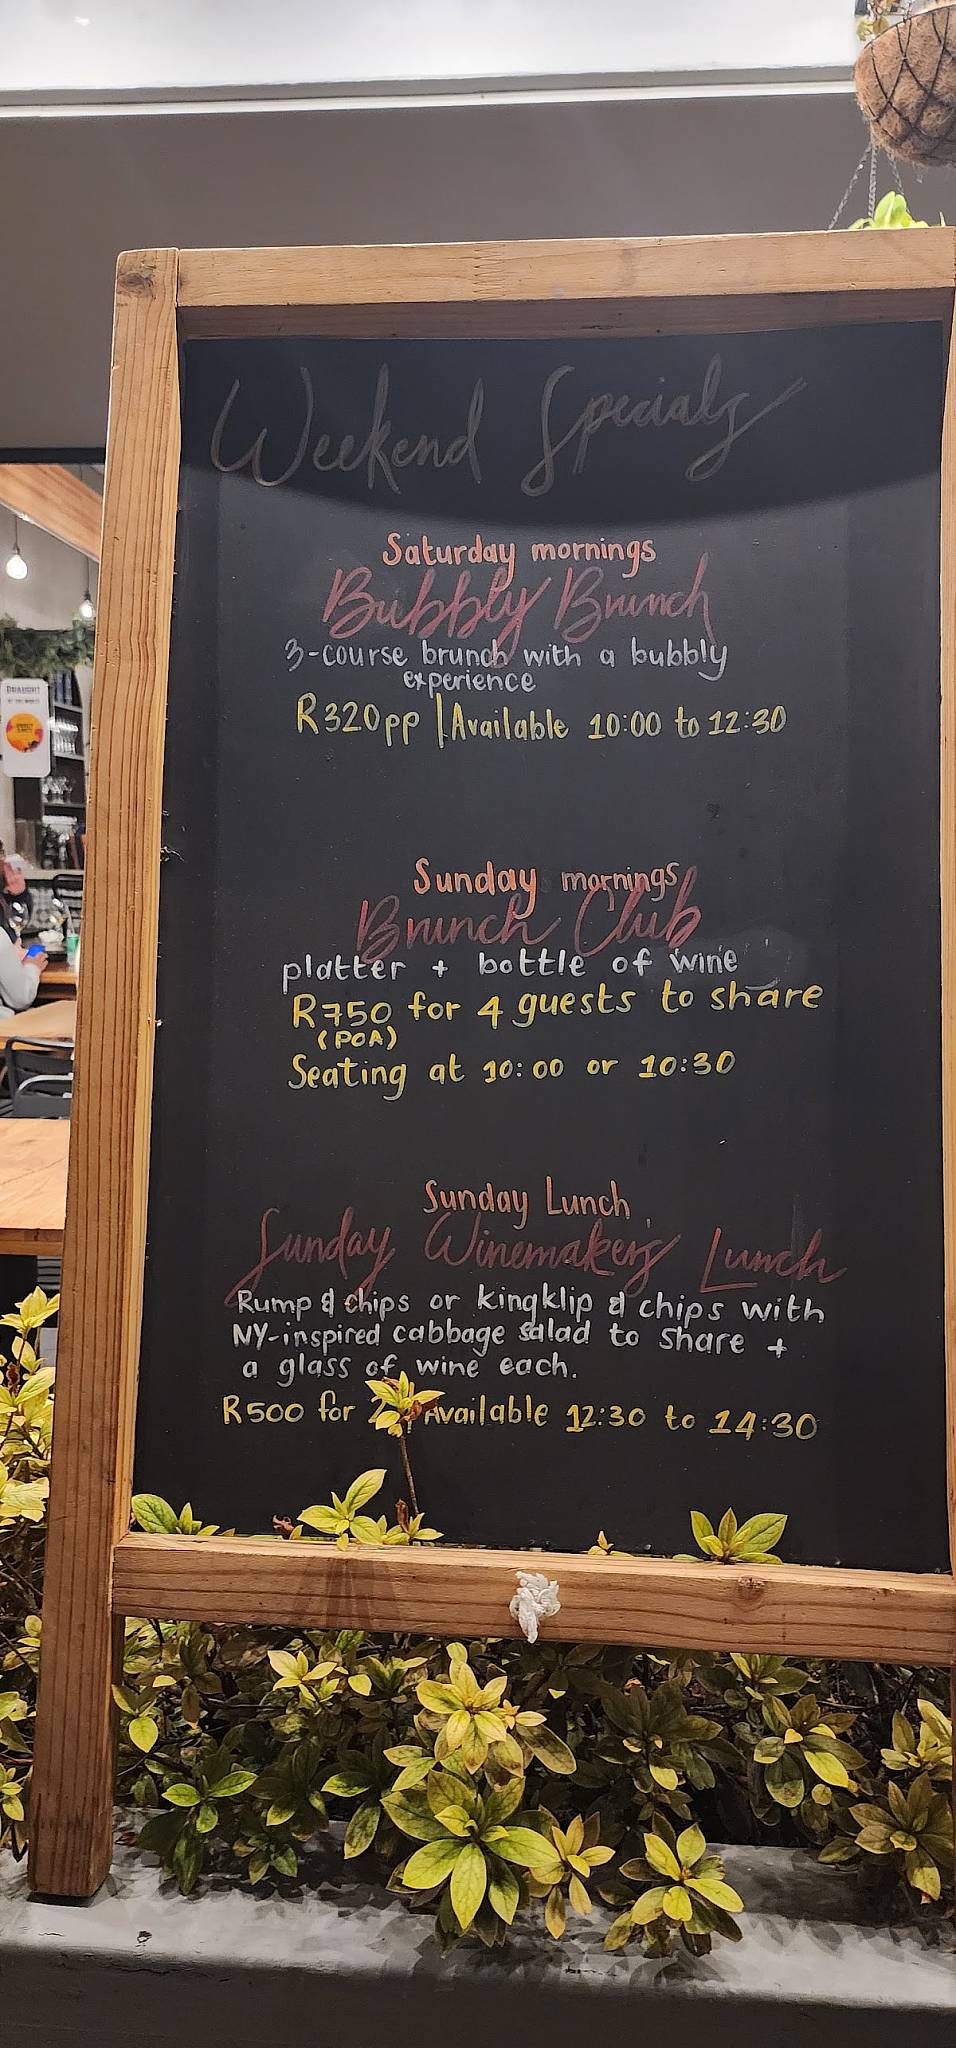 Weekend Specials
Saturday mornings
Bubbly Brunch
3-course brunch with a bubbly
experience
R320pp | Available 10:00 to 12:30
Sunday mornings
Brunch Club
platter + bottle of wine
R750 for 4 guests to share
(POA)
Seating at 10:00 or 10:30
Sunday Lunch
Sunday Winemakers Lunch
Rump & chips or kingklip & chips with
NY-inspired cabbage salad to share +
a glass of wine each.
R500 for 2 | Available 12:30 to 14:30
DRAUGHT